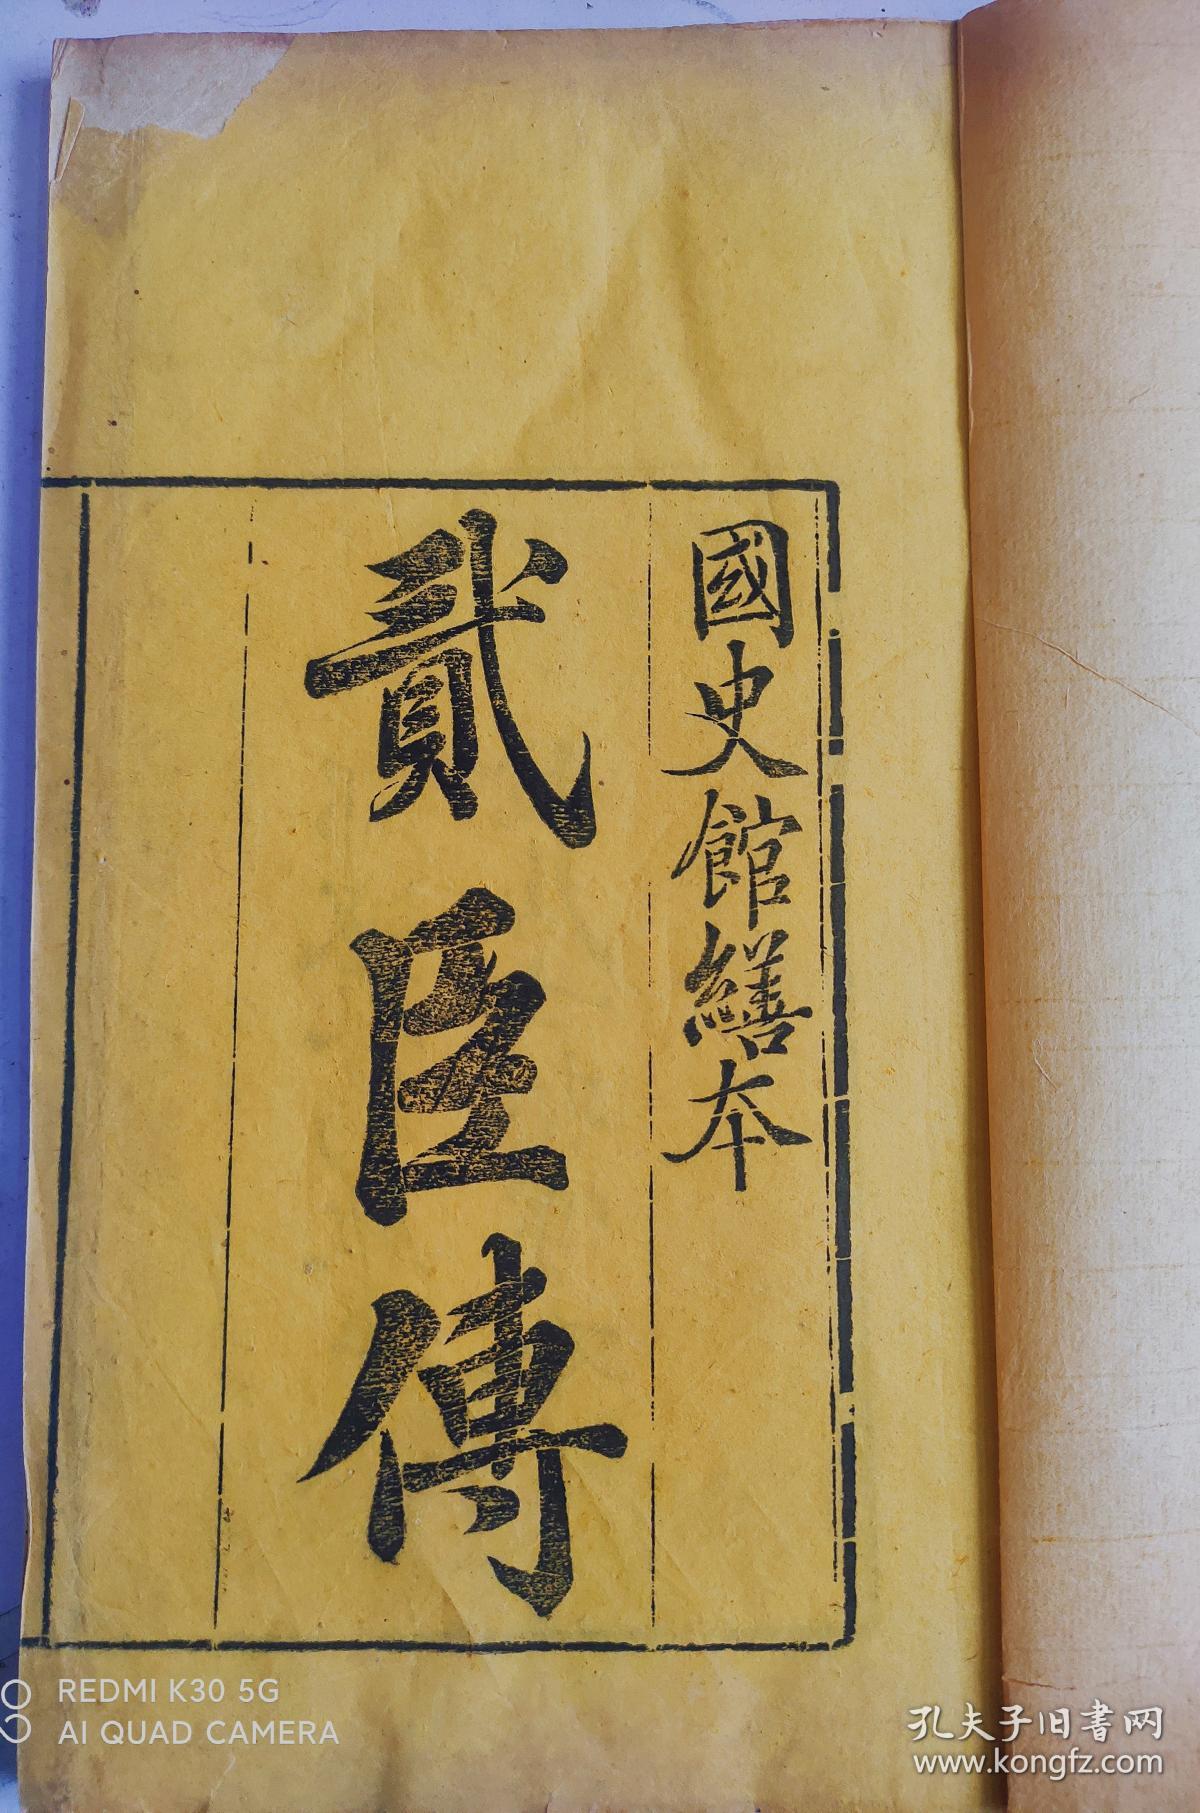 國史館繕本
貳臣傳
REDMI K30 5G
AI QUAD CAMERA
孔夫子旧書网
www.kongfz.com